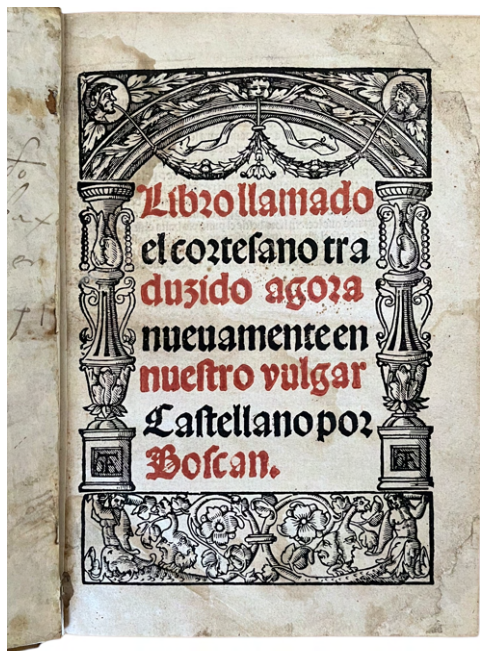 Libro llamado
el cortesano tra
duzido agora
nueuamente en
nuestro vulgar
Castellano por
Boscan.